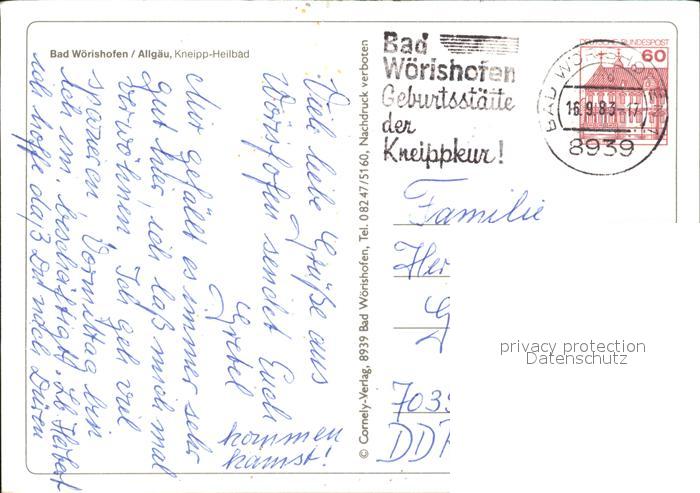 Bad Wörishofen / Allgäu, Kneipp-Heilbad
Viele liebe Grüße aus
Wörishofen sendet Euch
Gretel
Mir gefällt es immer sehr
gut hier, ich laß mich mal
verwöhnen. Ich geh viel
spazieren, Vormittag bin
ich im beschäftigt. Lb. Herbert
ich hoffe daß Du nach Düren
kommen
kannst!
© Cornely-Verlag, 8939 Bad Wörishofen, Tel. 08247/5160, Nachdruck verboten
Bad
Wörishofen
Geburtsstätte
der
Kneippkur!
DEUTSCHE BUNDESPOST
60
BAD WÖRISHOFEN
16.9.83-17
8939
Familie
Her
G
703
DDR
privacy protection
Datenschutz